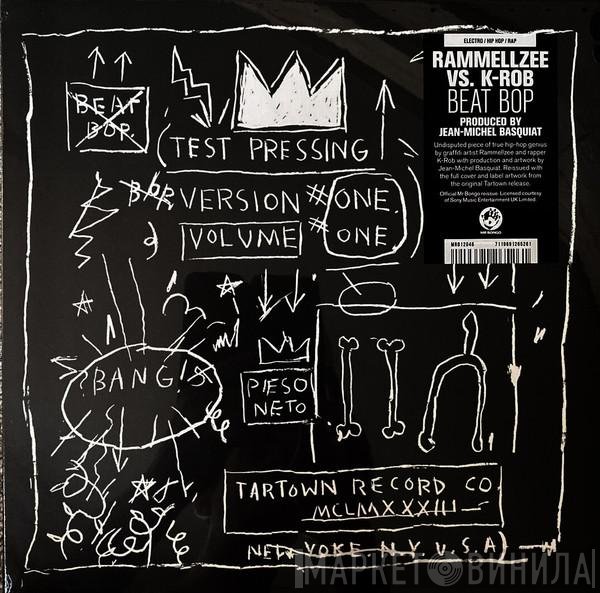 ELECTRO / HIP HOP / RAP
RAMMELLZEE
VS. K-ROB
BEAT BOP
PRODUCED BY
JEAN-MICHEL BASQUIAT
Undisputed piece of true hip-hop genius
by graffiti artist Rammellzee and rapper
K-Rob with production and artwork by
Jean-Michel Basquiat. Reissued with
the full cover and label artwork from
the original Tartown release.
Official Mr Bongo reissue. Licensed courtesy
of Sony Music Entertainment UK Limited.
MR BONGO
MRB12046 7119691265261
BEAT
BOP
(TEST PRESSING
BOP VERSION # ONE
VOLUME # ONE
BANG!
PIESO
NETO
TARTOWN RECORD CO.
MCLMXXXIII
NEW YOKE N.Y. U.S.A)
МАРКЕТ ВИНИЛА